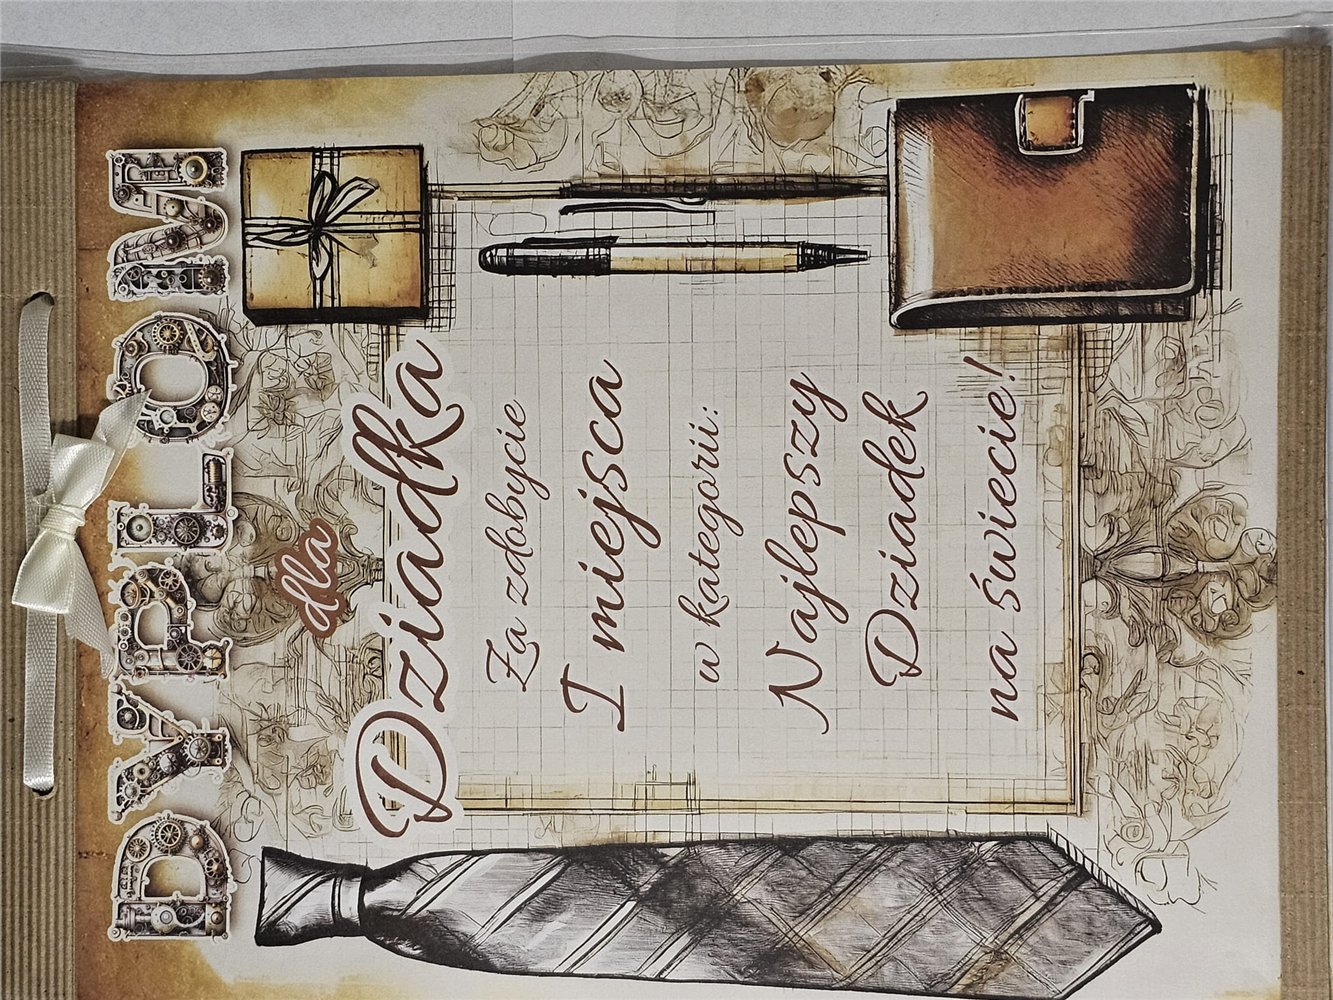 DYPLOM
dla
Dziadka
Za zdobycie
I miejsca
w kategorii:
Najlepszy
Dziadek
na świecie!